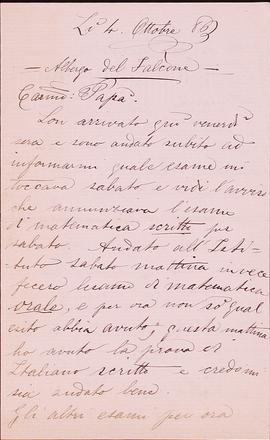 Li 4. Ottobre 86
— Albergo del Falcone —
Carmo: Papa.
Son arrivato quì venerdì
sera e sono andato subito ad
informarmi quale esame mi
toccava sabato e vidi l'avviso
che annunziava l'esame
di matematica scritto per
sabato. Andato all'Isti-
tuto sabato mattina invece
fecero l'esame di matematica
orale, e per ora non so qual
esito abbia avuto; questa mattina
ho avuto la prova di
Italiano scritto e credomi
sia andato bene.
Gli altri esami per ora